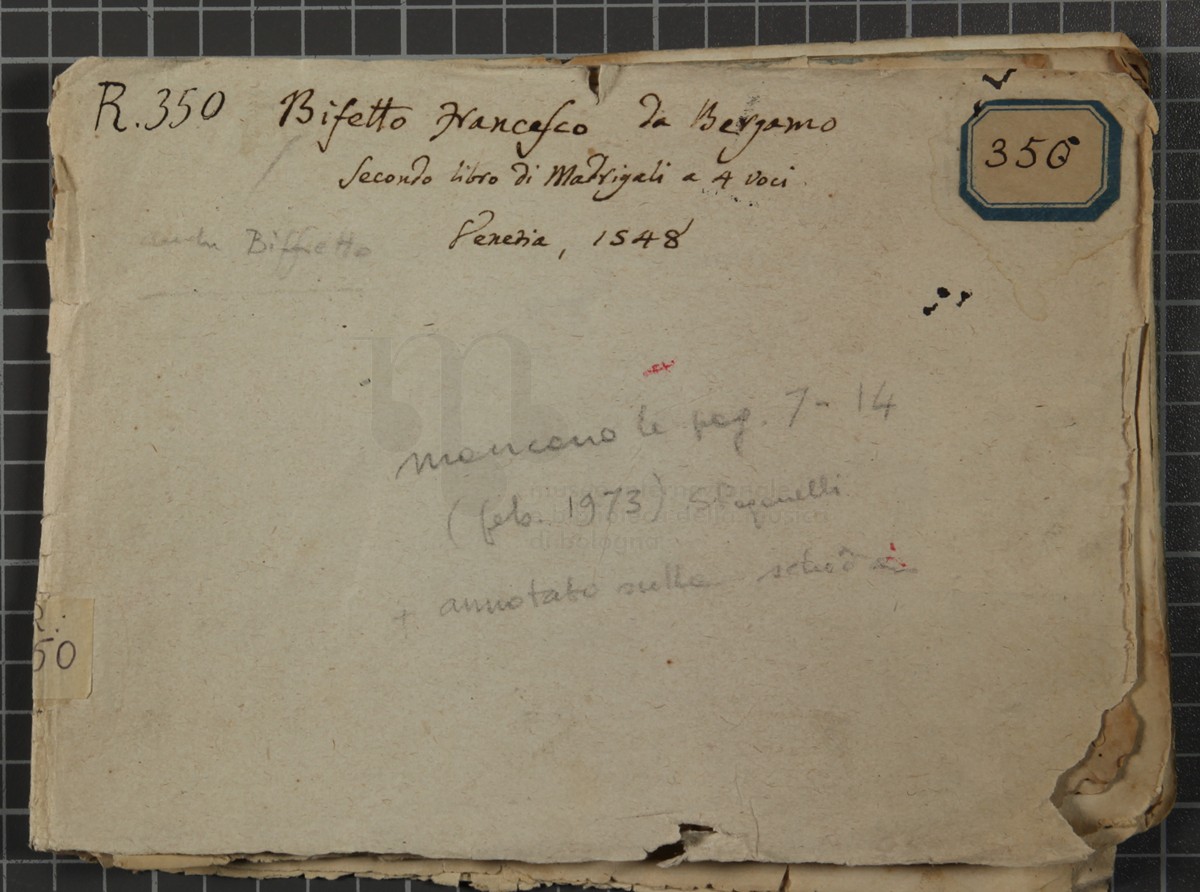 R.350 Bifetto Francesco da Bergamo
350
Secondo libro di Madrigali a 4 voci
Venezia, 1548
Biffetto
mancano le pag. 7-14
(feb. 1973)
museo internazionale
e biblioteca della musica
di bologna
+ annotato sulla scheda
R.
50